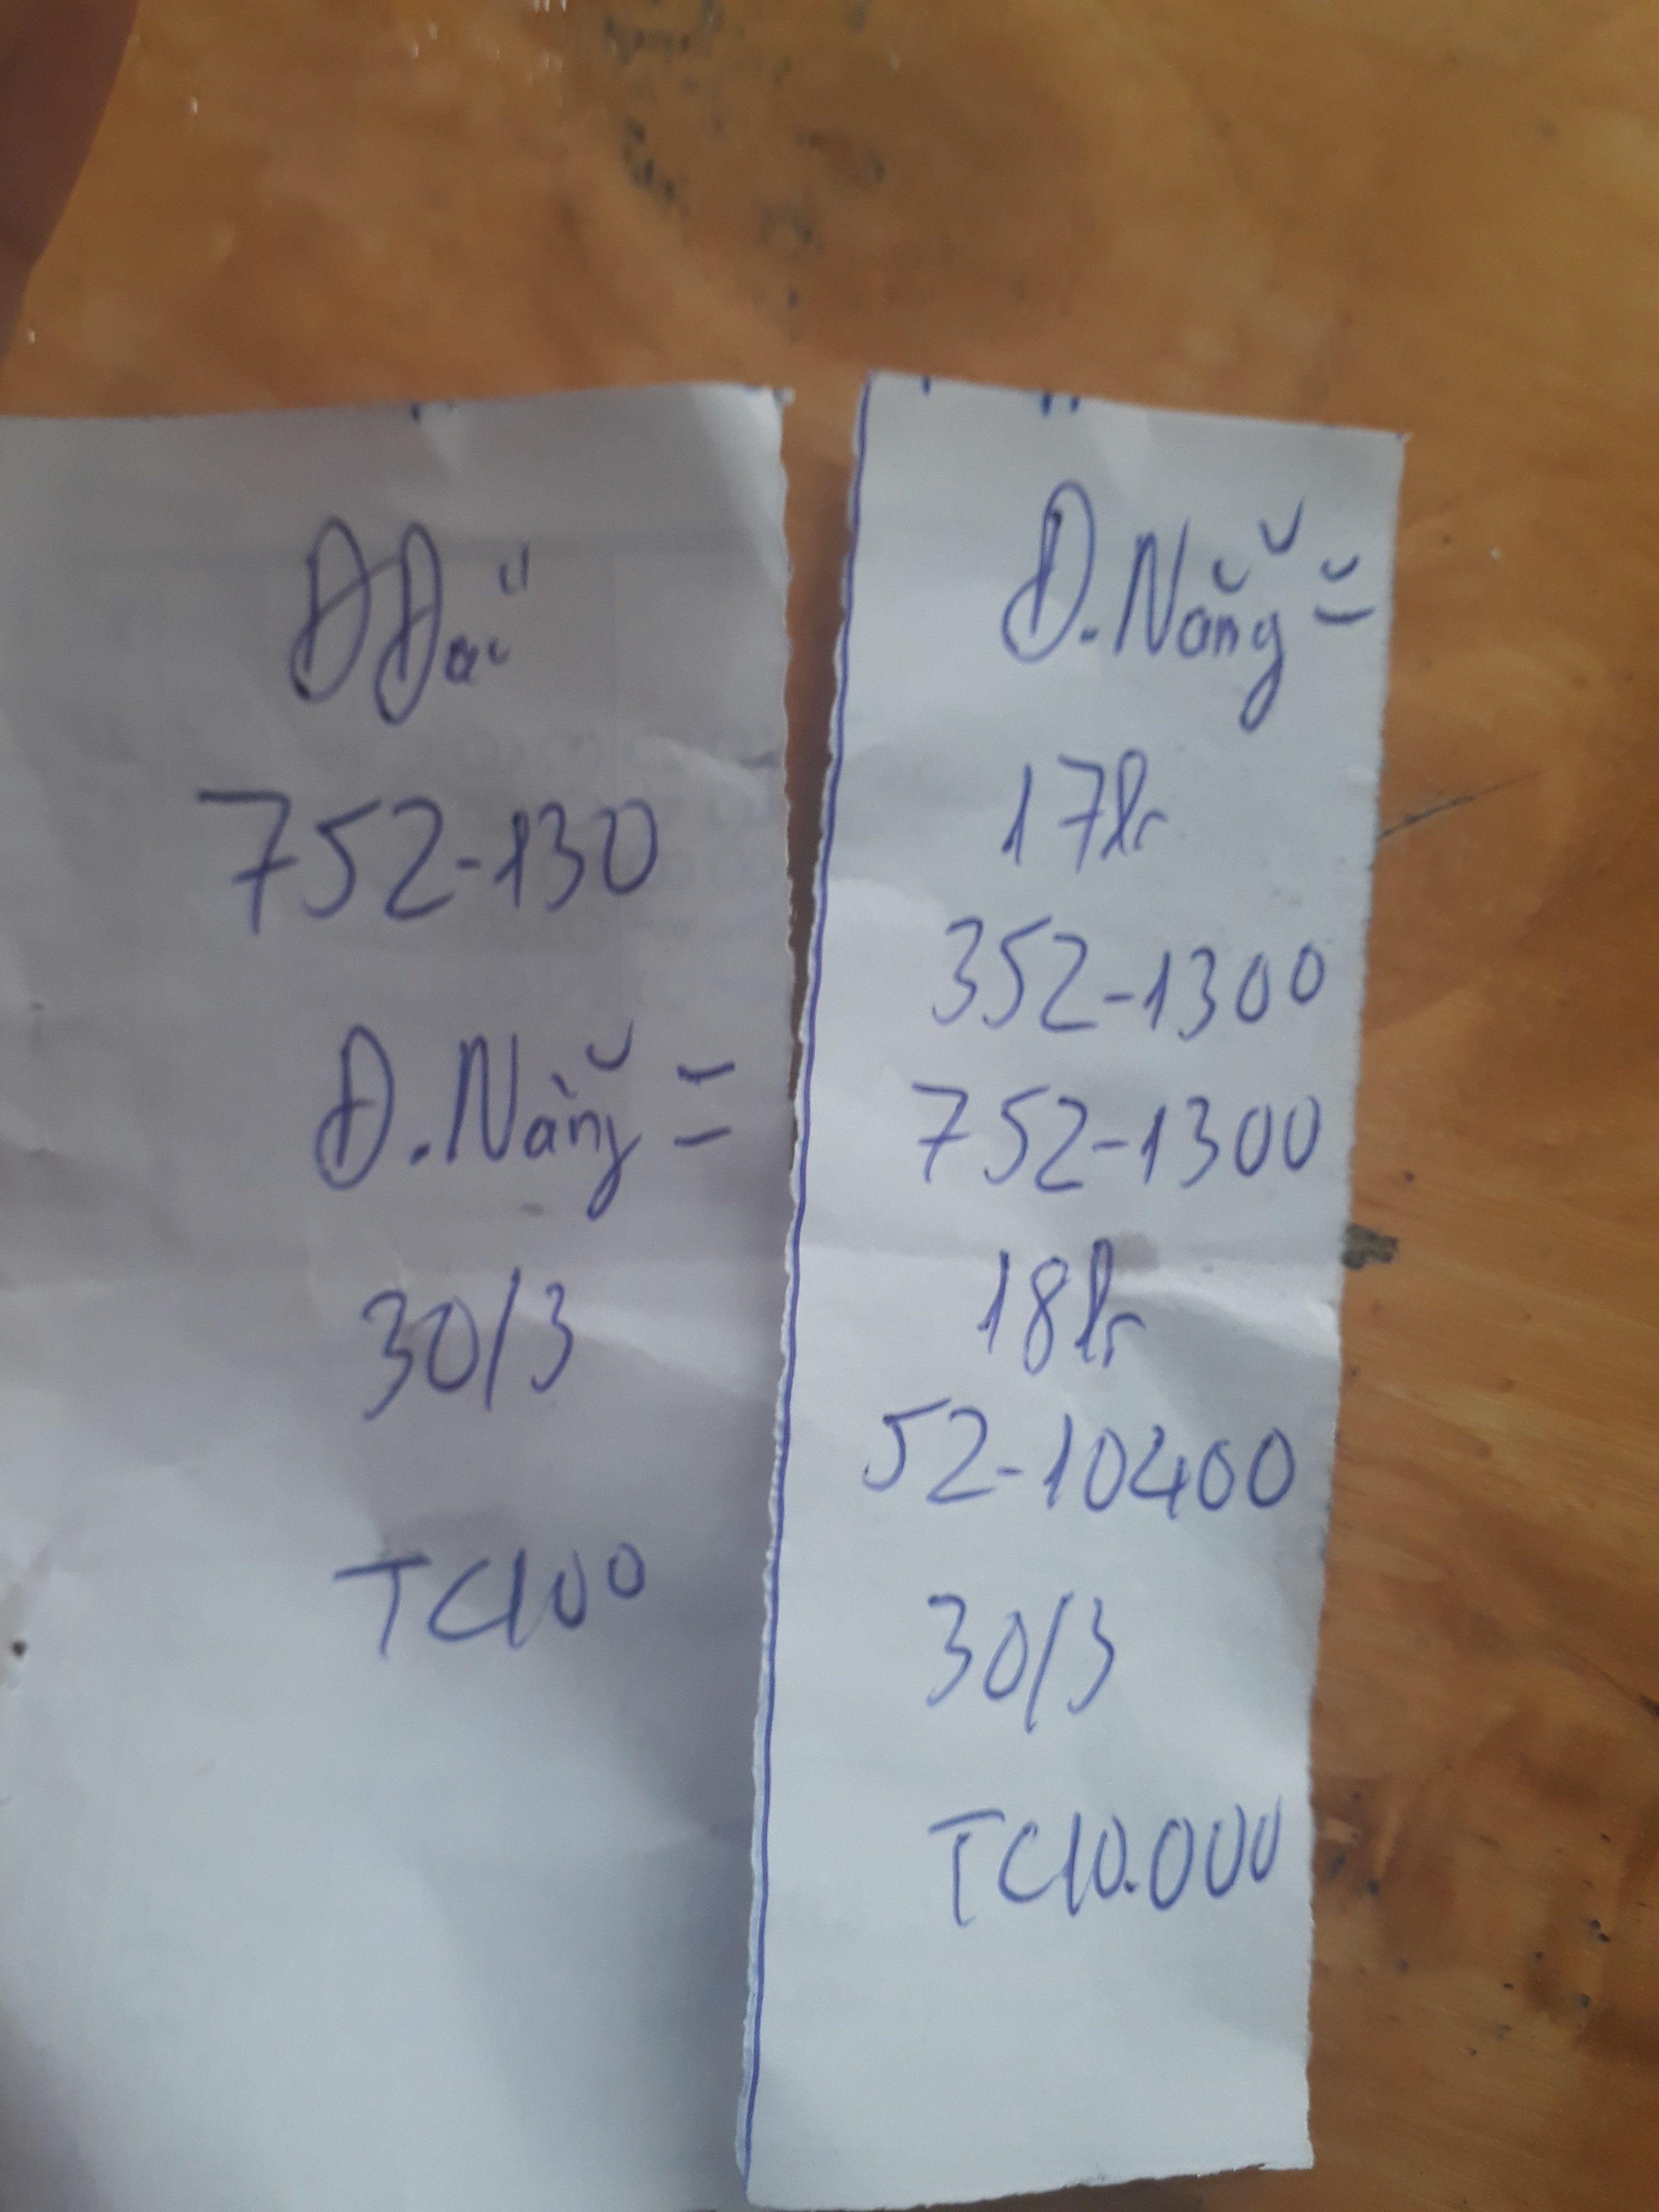 ĐĐài
752-130
Đ.Nẵng =
30/3
TC100
Đ.Nẵng =
17lr
352-1300
752-1300
18lr
52-10400
30/3
TC10.000